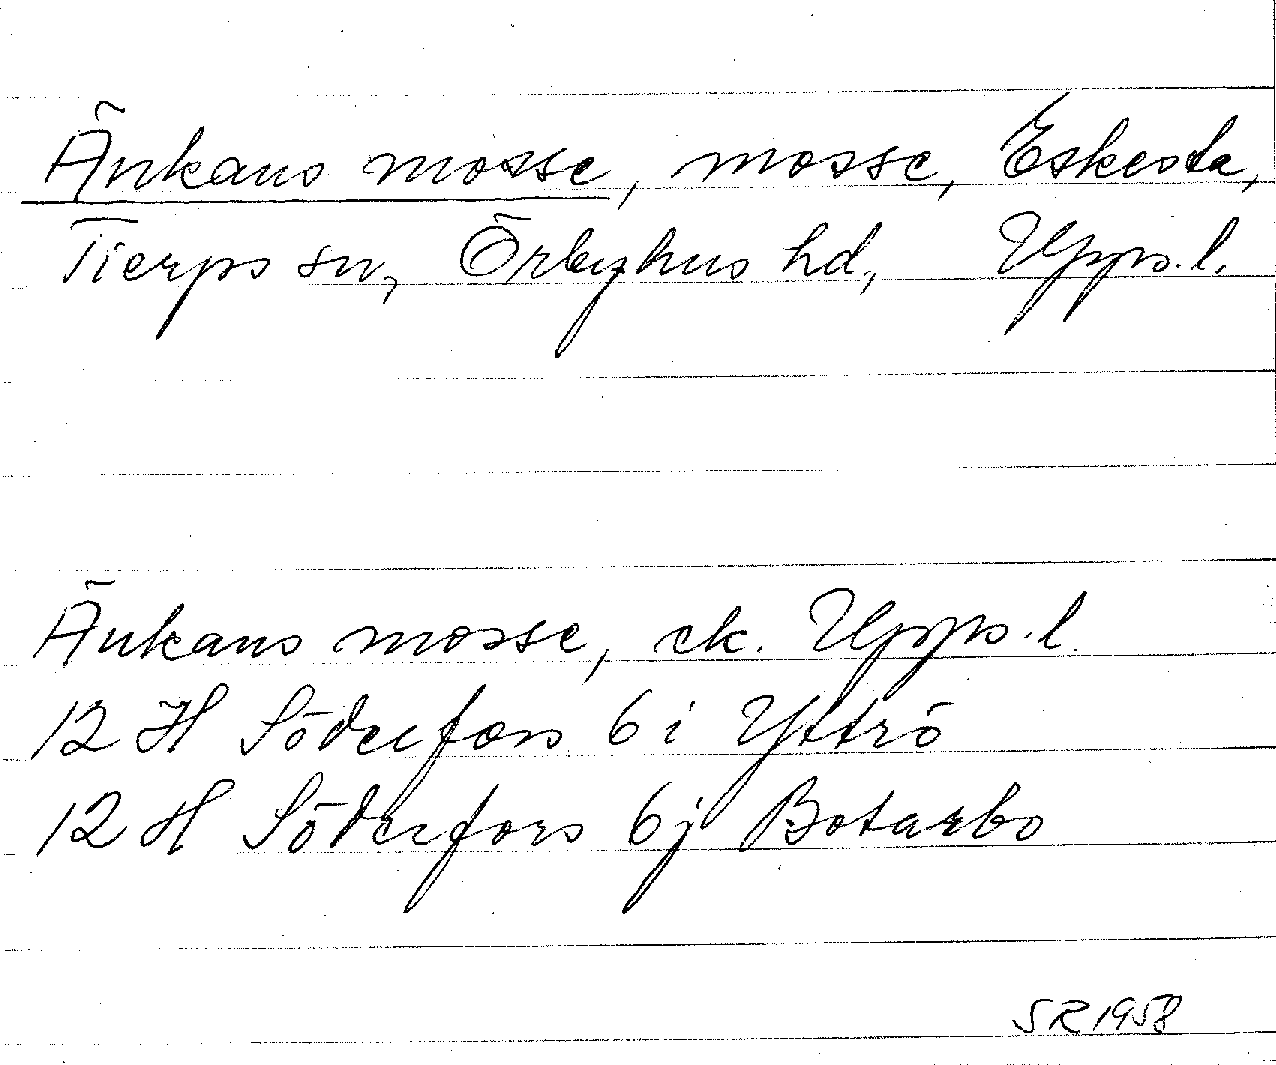 Änkans mosse, mosse, Eskesta,
Tierps sn, Örbyhus hd, Upps. l.
Änkans mosse, ek. Upps. l.
12 H Söderfors 6 i Yttrö
12 H Söderfors 6 j Botarbo
SR 1958